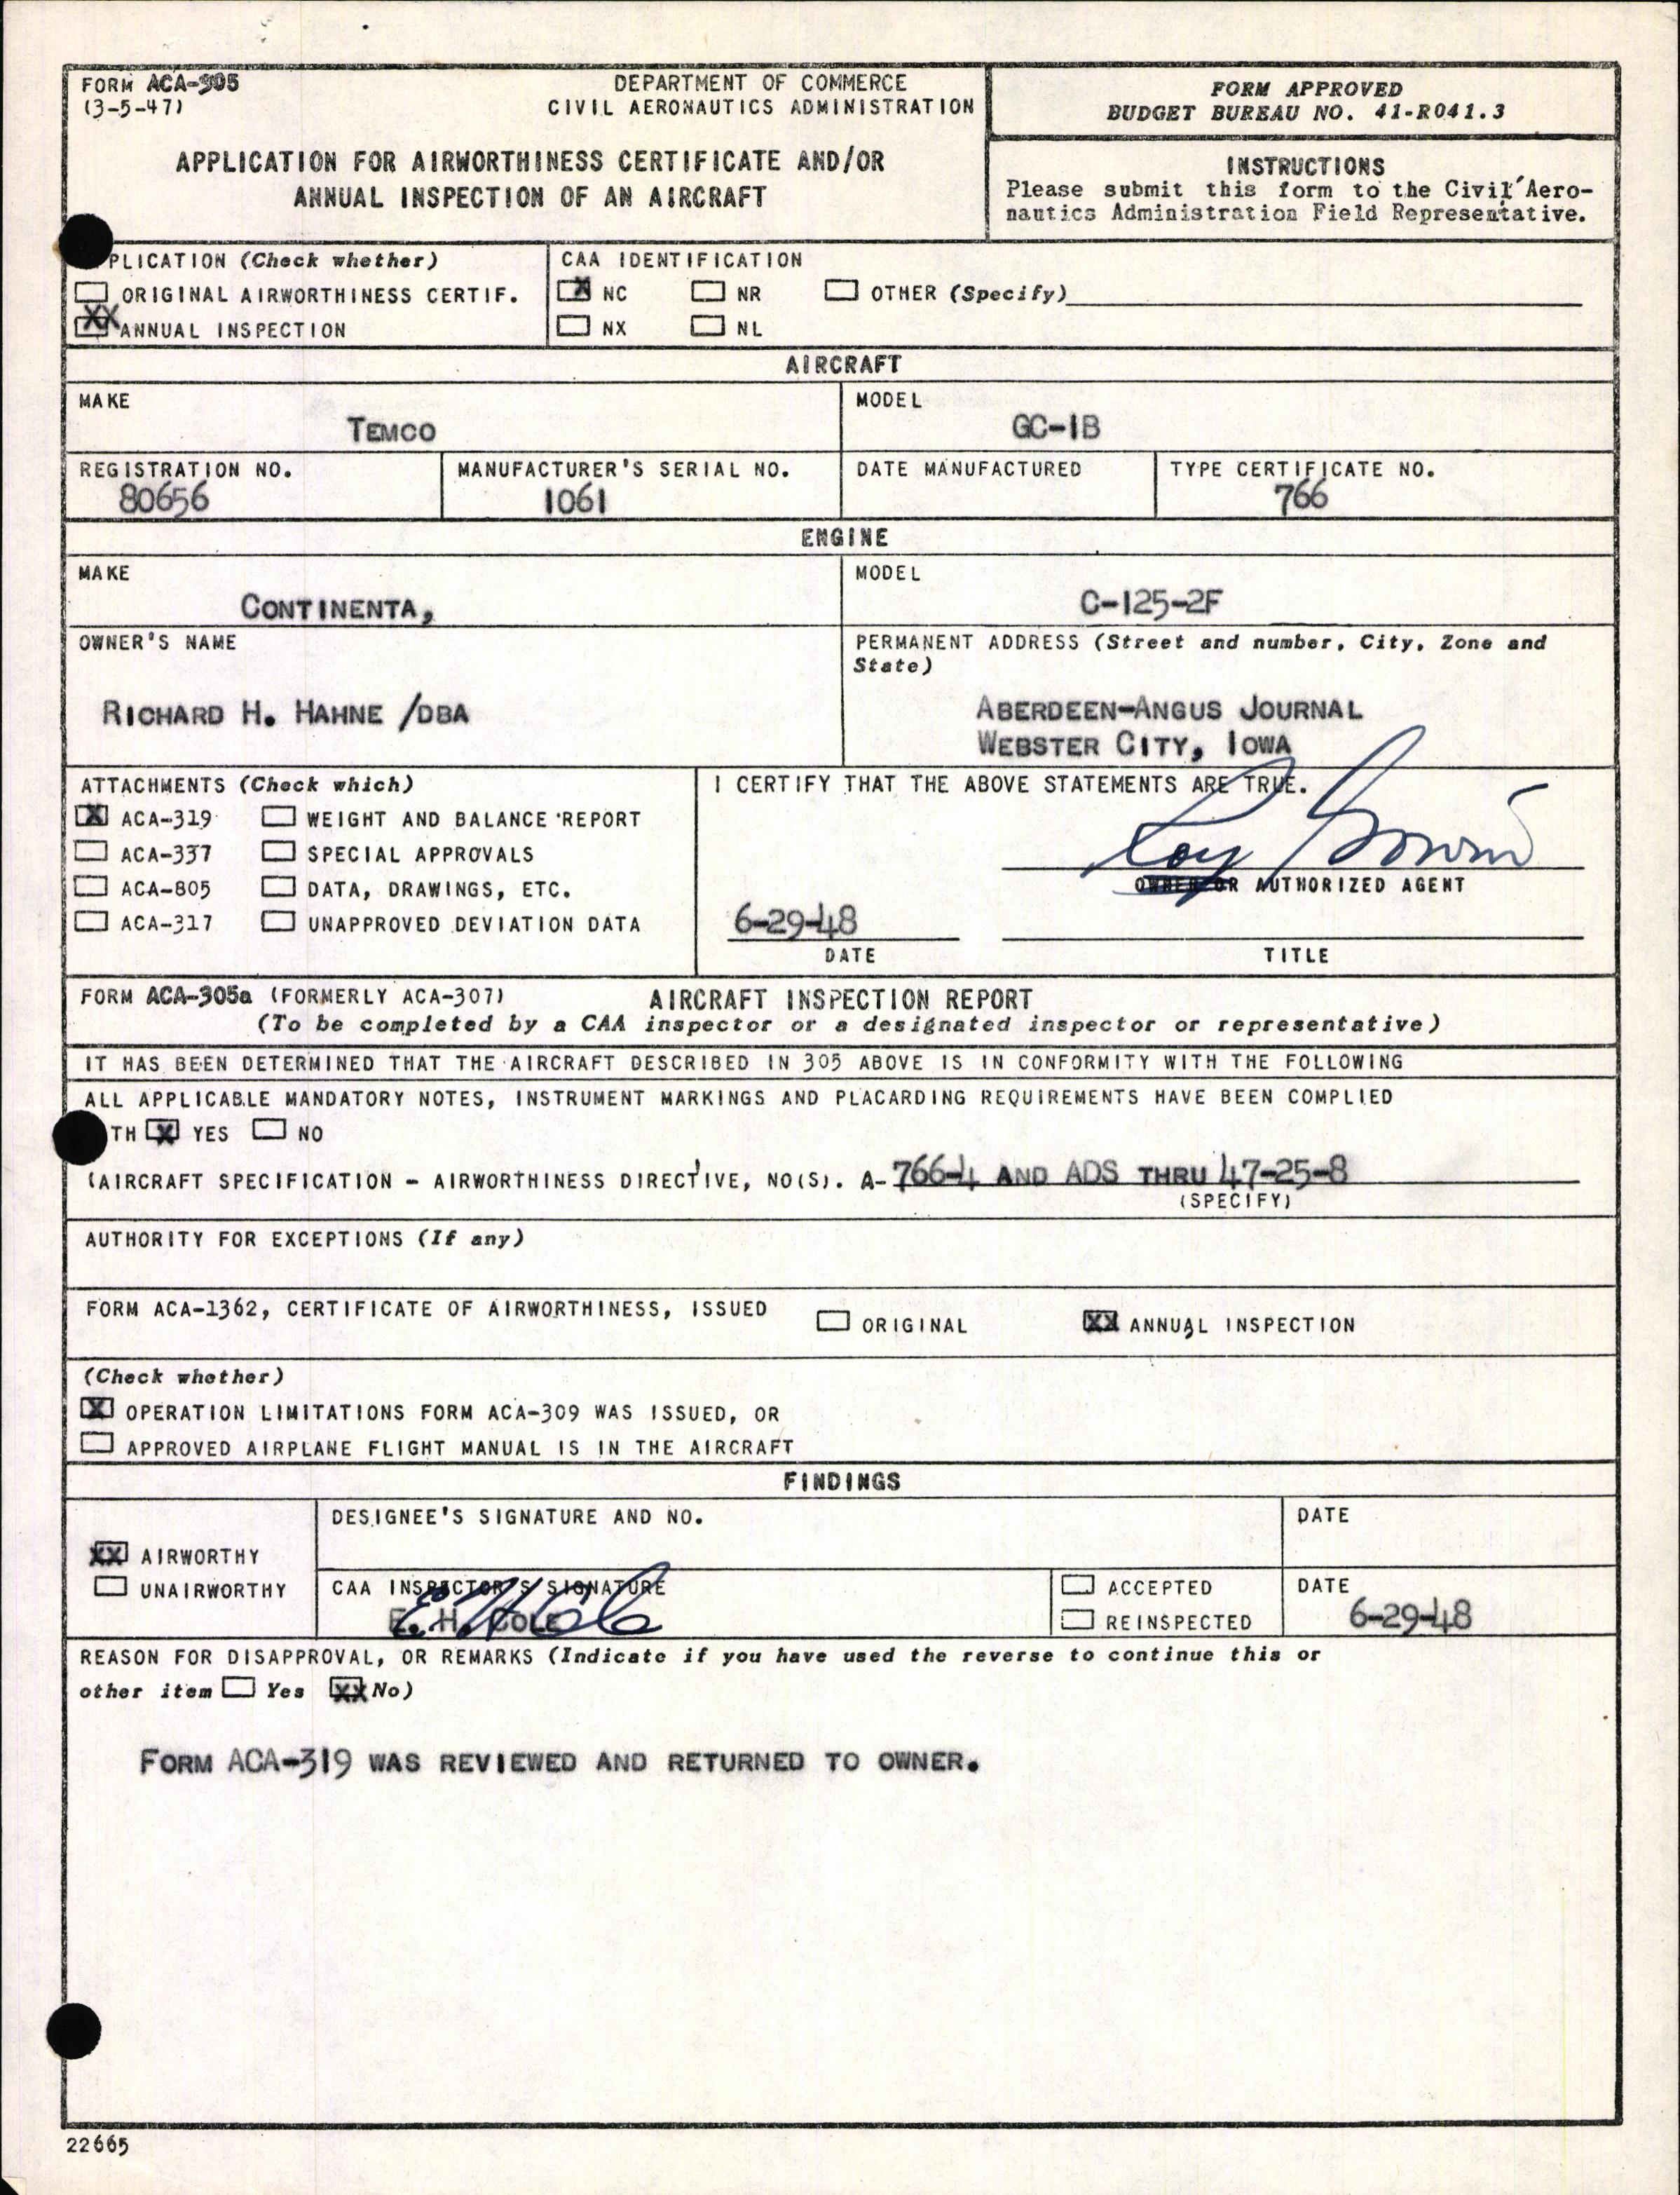 FORM ACA-305
(3-5-47)
DEPARTMENT OF COMMERCE
CIVIL AERONAUTICS ADMINISTRATION
APPLICATION FOR AIRWORTHINESS CERTIFICATE AND/OR
ANNUAL INSPECTION OF AN AIRCRAFT
FORM APPROVED
BUDGET BUREAU NO. 41-R041.3
INSTRUCTIONS
Please submit this form to the Civil Aero-
nautics Administration Field Representative.
PLICATION (Check whether)
ORIGINAL AIRWORTHINESS CERTIF.
XX ANNUAL INSPECTION
CAA IDENTIFICATION
X NC NR OTHER (Specify)
NX NL
AIRCRAFT
MAKE
TEMCO
MODEL
GC-1B
REGISTRATION NO.
80656
MANUFACTURER'S SERIAL NO.
1061
DATE MANUFACTURED
TYPE CERTIFICATE NO.
766
ENGINE
MAKE
CONTINENTA,
MODEL
C-125-2F
OWNER'S NAME
RICHARD H. HAHNE /DBA
PERMANENT ADDRESS (Street and number, City, Zone and
State)
ABERDEEN-ANGUS JOURNAL
WEBSTER CITY, IOWA
ATTACHMENTS (Check which)
X ACA-319 WEIGHT AND BALANCE REPORT
ACA-337 SPECIAL APPROVALS
ACA-805 DATA, DRAWINGS, ETC.
ACA-317 UNAPPROVED DEVIATION DATA
I CERTIFY THAT THE ABOVE STATEMENTS ARE TRUE.
Roy
OWNER OR AUTHORIZED AGENT
6-29-48
DATE
TITLE
FORM ACA-305a (FORMERLY ACA-307) AIRCRAFT INSPECTION REPORT
(To be completed by a CAA inspector or a designated inspector or representative)
IT HAS BEEN DETERMINED THAT THE AIRCRAFT DESCRIBED IN 305 ABOVE IS IN CONFORMITY WITH THE FOLLOWING
ALL APPLICABLE MANDATORY NOTES, INSTRUMENT MARKINGS AND PLACARDING REQUIREMENTS HAVE BEEN COMPLIED
TH X YES NO
(AIRCRAFT SPECIFICATION - AIRWORTHINESS DIRECTIVE, NO(S). A- 766-4 AND ADS THRU 47-25-8
(SPECIFY)
AUTHORITY FOR EXCEPTIONS (If any)
FORM ACA-1362, CERTIFICATE OF AIRWORTHINESS, ISSUED ORIGINAL XX ANNUAL INSPECTION
(Check whether)
X OPERATION LIMITATIONS FORM ACA-309 WAS ISSUED, OR
APPROVED AIRPLANE FLIGHT MANUAL IS IN THE AIRCRAFT
FINDINGS
XX AIRWORTHY
UNAIRWORTHY
DESIGNEE'S SIGNATURE AND NO.
DATE
CAA INSPECTOR'S SIGNATURE
E. H. COLE
E H Cole
ACCEPTED
REINSPECTED
DATE
6-29-48
REASON FOR DISAPPROVAL, OR REMARKS (Indicate if you have used the reverse to continue this or
other item Yes XX No)
FORM ACA-319 WAS REVIEWED AND RETURNED TO OWNER.
22665